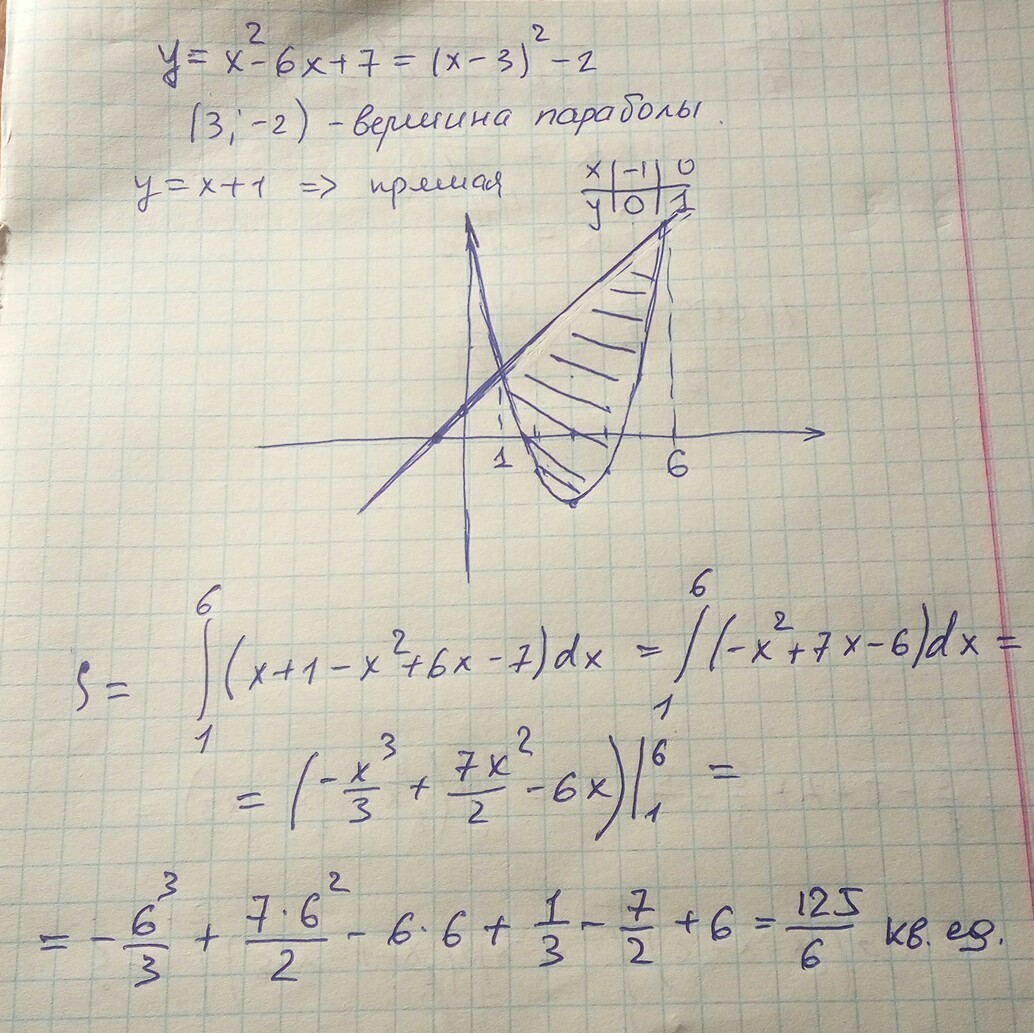 y = x² - 6x + 7 = (x - 3)² - 2
(3; -2) - вершина параболы.
y = x + 1 => прямая
x | -1 | 0
y | 0 | 1
1 6
S = ∫₁⁶ (x + 1 - x² + 6x - 7) dx = ∫₁⁶ (-x² + 7x - 6) dx =
= (-x³/3 + 7x²/2 - 6x) |₁⁶ =
= - 6³/3 + 7·6²/2 - 6·6 + 1/3 - 7/2 + 6 = 125/6 кв. ед.